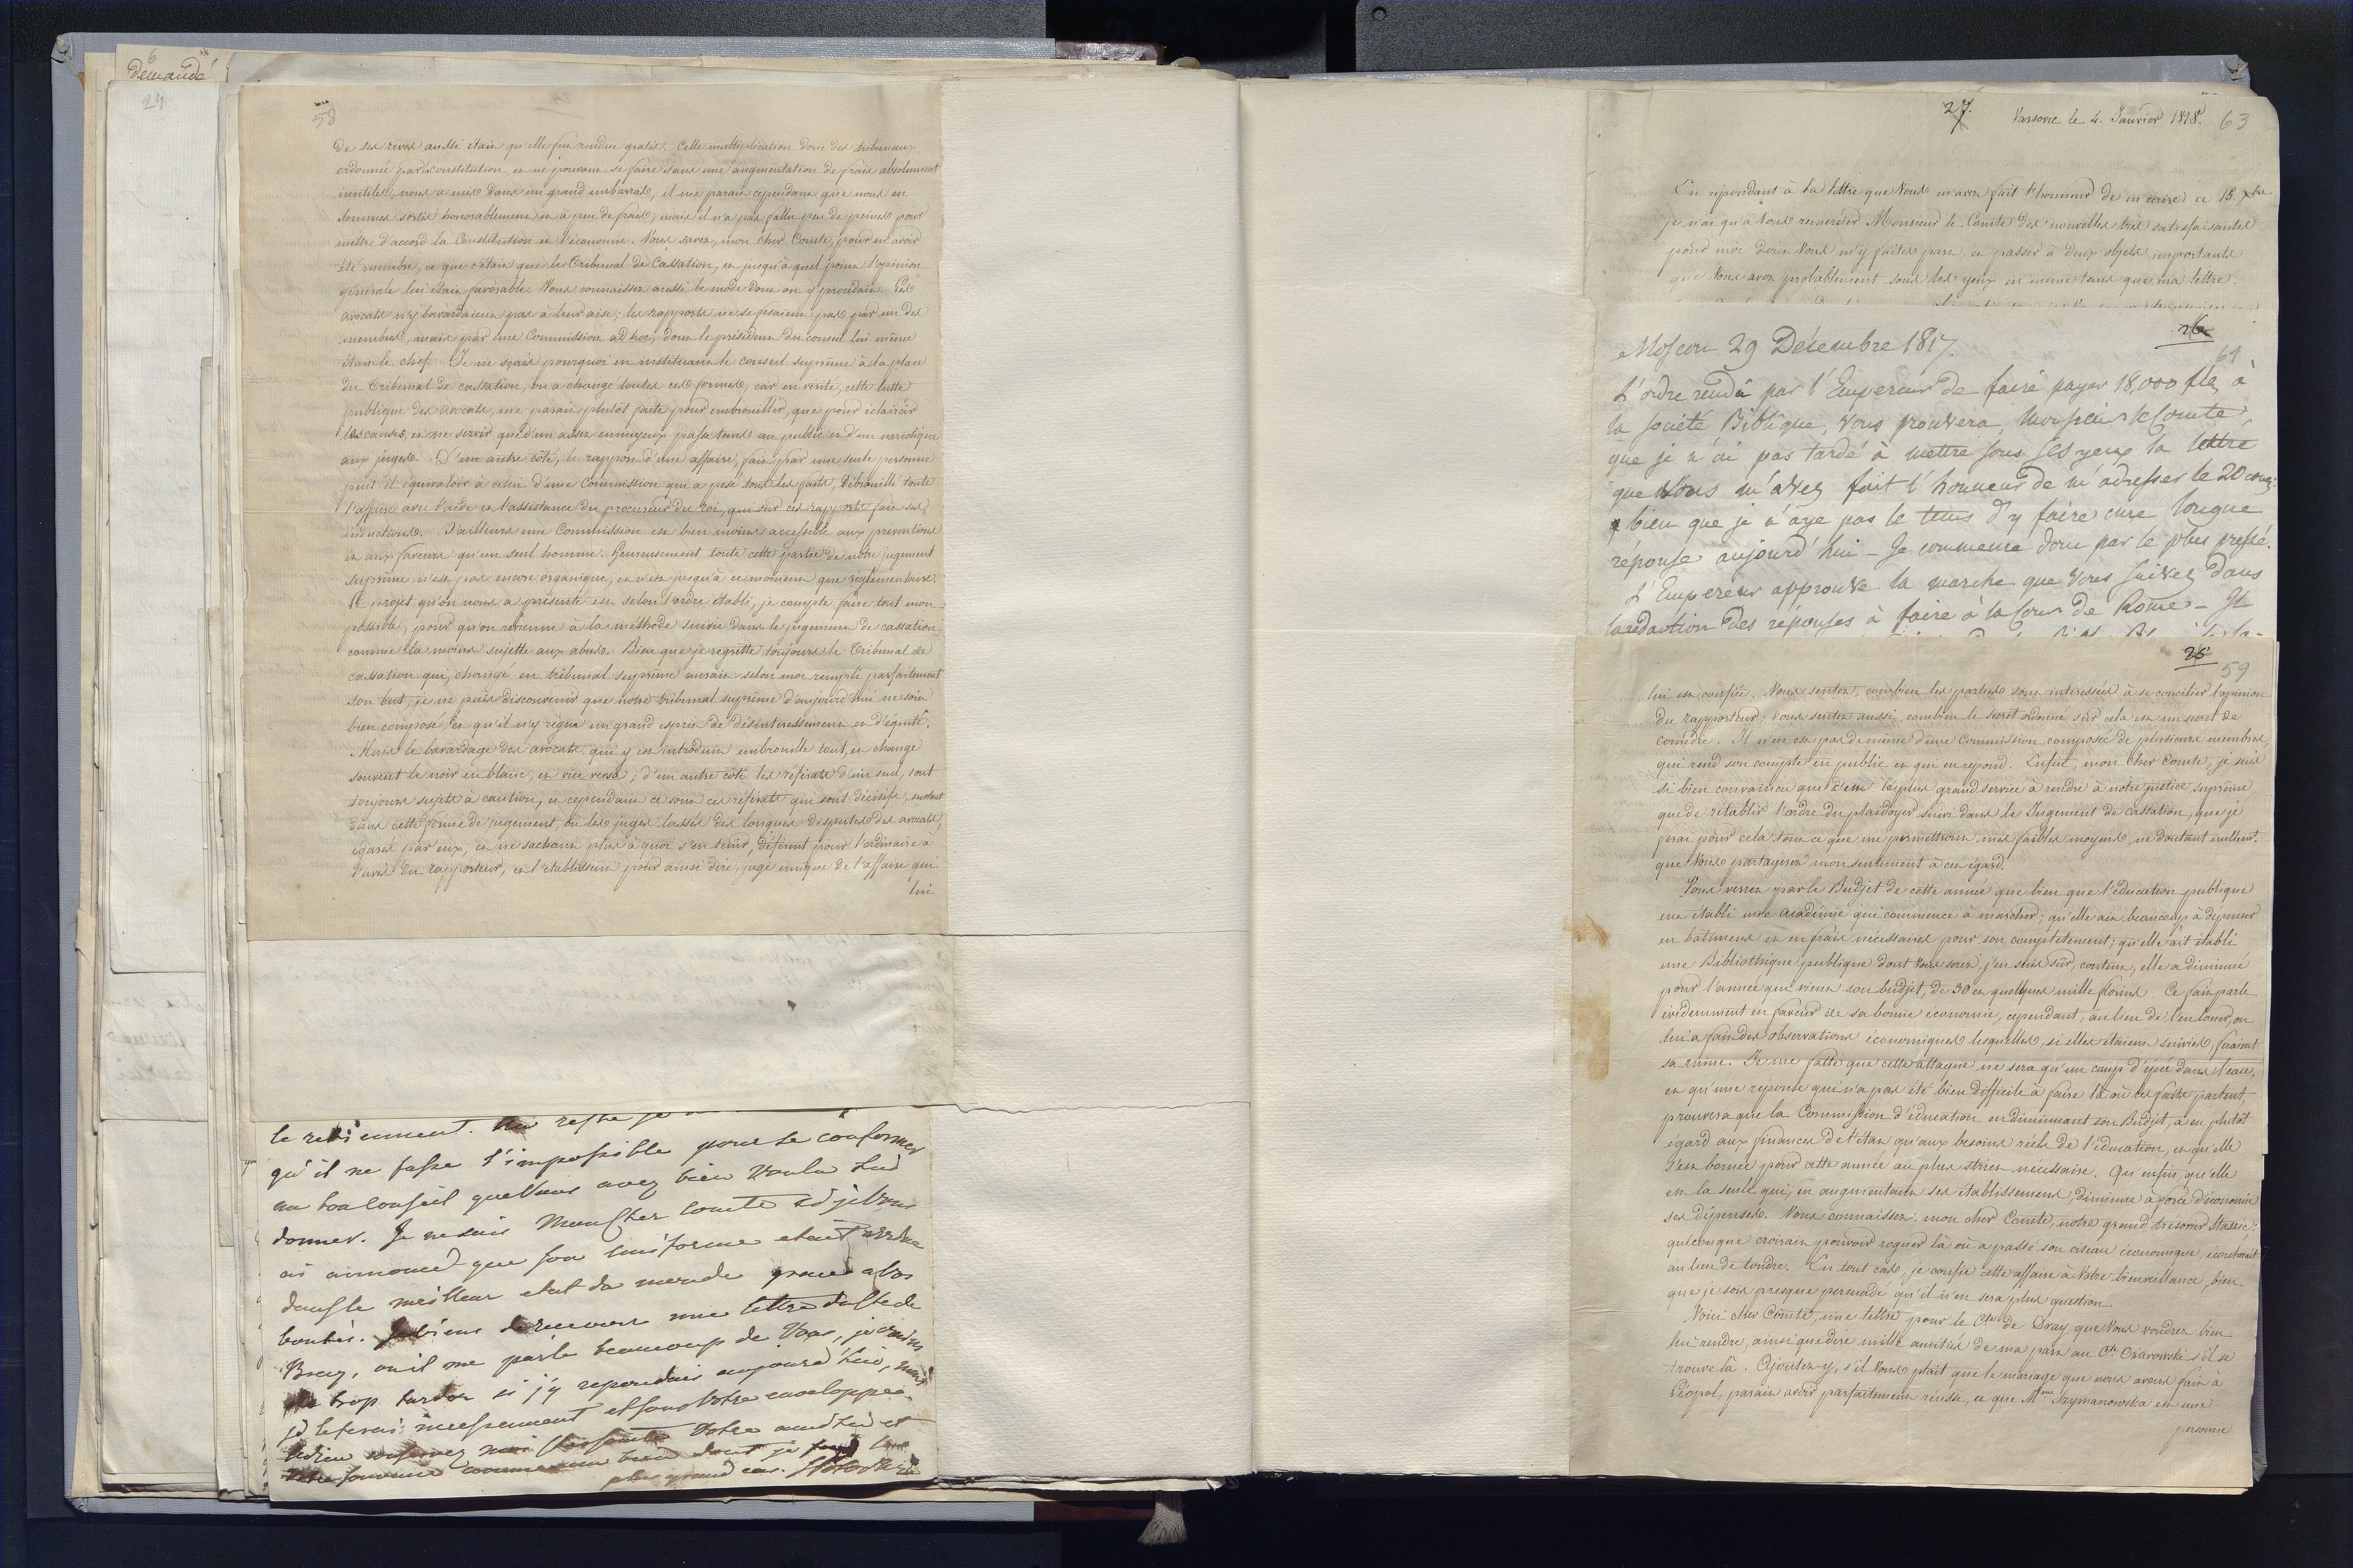 demandé
24
58
De ses rives aussi était qu'elle fut rendue gratis. Cette multiplication donc des tribunaux
ordonnée par la constitution et ne pouvant se faire sans une augmentation de frais absolument
inutiles, nous a mis dans un grand embarras, il me parait cependant que nous en
sommes sortis honorablement et à peu de frais, mais il n'a pas fallu peu de peines pour
mettre d'accord la Constitution et l'économie. Vous savez, mon cher Comte, pour en avoir
été membre, ce que c'était que le Tribunal de Cassation, et jusqu'à quel point l'opinion
générale lui était favorable. Vous connaissez aussi le mode dont on y procédait. Les
avocats n'y bavardaient pas à leur aise; les rapports ne se fesaient pas par un des
membres, mais par une Commission ad hoc, dont le président du conseil lui même
était le chef. Je ne sçais pourquoi en instituant le conseil suprême à la place
du Tribunal de cassation, on a changé toutes ces formes, car en vérité, cette lutte
publique des avocats, me parait plutôt faite pour embrouiller, que pour éclaircir
les causes, et ne servir que d'un assez ennuyeux passe tems au public et d'un narcotique
aux juges. D'un autre côté, le rapport d'une affaire, fait par une seule personne
peut il équivaloir à celui d'une Commission qui a pesé tous les faits, débrouillé toute
l'affaire avec l'aide et l'assistance du procureur du roi, qui sur ces rapports fait ses
inductions. D'ailleurs une Commission est bien moins accessible aux préventions
et aux faveurs qu'un seul homme. Heureusement toute cette partie de notre jugement
suprême n'est pas encore organique, et n'est jusqu'à ce moment que réglementaire.
Le projet qu'on nous a présenté est selon l'ordre établi, je compte faire tout mon
possible, pour qu'on revienne à la méthode suivie dans le jugement de cassation
comme la moins sujette aux abus. Bien que je regrette toujours le Tribunal de
cassation qui, changé en tribunal suprême aurait selon moi rempli parfaitement
son but, je ne puis disconvenir que notre tribunal suprême d'aujourd'hui ne soit
bien composé et qu'il n'y règne un grand esprit de désintéressement et d'équité.
Mais le bavardage des avocats qui y est introduit embrouille tout, et change
souvent le noir en blanc, et vice versa; d'un autre côté les référats d'un seul, sont
toujours sujets à caution, et cependant ce sont ces référats qui sont décisifs, surtout
dans cette forme de jugement, où les juges lassés des longues disputes des avocats,
égarés par eux, et ne sachant plus à quoi s'en tenir, déferent pour l'ordinaire à
l'avis du rapporteur, et l'établissent pour ainsi dire, juge unique de l'affaire qui
lui
qu'il ne fasse l'impossible pour se conformer
au bon Conseil que Vous avez bien voulu Lui
donner. Je ne sais Mon Cher Comte si je Vous
ai annoncé que son uniforme etait arrivé
dans le meilleur etat du monde grace a Vos
bontés. Je viens de recevoir une lettre du Cte de
Bray, où il me parle beaucoup de Vous, je crains
de trop tarder si j'y repondais aujourd'hui, mais
je le ferai incessament et sous Votre enveloppe.
Adieu conservez moi Votre amitié et
Votre souvenir comme un bien dont je fais le
plus grand cas.
27.
Varsovie le 4. Janvier 1818.
63
En répondant à la lettre que Vous m'avez fait l'honneur de m'écrire ce 15. Xbre
je n'ai qu'à Vous remercier Monsieur le Comte des nouvelles très satisfaisantes
pour moi dont Vous m'y faites part, et passer à deux objets importants
que Vous avez probablement sous les yeux en même tems que ma lettre.
26
61
Moscou 29 Décembre 1817.
L'ordre rendû par l'Empereur de faire payer 18,000 flz à
la société Biblique, Vous prouvera, Monsieur le Comte,
que je n'ai pas tardé à mettre sous ses yeux la lettre
que Vous m'avez fait l'honneur de m'adresser le 20 cour:
bien que je n'aye pas le tems d'y faire une longue
réponse aujourd'hui – Je commence donc par le plus pressé.
L'Empereur approuve la marche que Vous suivez dans
la redaction des réponses à faire à la Cour de Rome – Il
25
59
lui est confiée. Vous sentez combien les parties sont intéressées à se concilier l'opinion
du rapporteur; Vous sentez aussi, combien le secret ordonné sur cela est un secret de
comédie. Il n'en est pas de même d'une Commission composée de plusieurs membres,
qui rend son compte en public et qui en repond. Enfin, mon cher Comte, je suis
si bien convaincu que c'est le plus grand service à rendre à notre justice suprême
que de rétablir l'ordre du plaidoyer suivi dans le Jugement de cassation, que je
ferai pour cela tout ce que me permettront mes faibles moyens, ne doutant nullemt.
que Vous partagerez mon sentiment à cet égard.
Vous verrez par le Budjet de cette année que bien que l'éducation publique
ait établi une académie qui commence à marcher; qu'elle ait beaucoup à dépenser
en batimens et en frais nécessaires pour son complettement; qu'elle ait établi
une Bibliothèque publique dont Vous serez, j'en suis sûr, content, elle a diminué
pour l'année qui vient son budjet, de 30 et quelques mille florins. Ce fait parle
évidemment en faveur de sa bonne économie, cependant, au lieu de l'en louer, on
lui a fait des observations économiques lesquelles, si elles étaient suivies, feraient
sa ruine. Je me flatte que cette attaque ne sera qu'un coup d'épée dans l'eau,
et qu'une reponse qui n'a pas été bien difficile à faire là où les faits parlent,
prouvera que la Commission d'éducation en diminuant son Budjet, a eu plutôt
égard aux finances de l'état qu'aux besoins réels de l'éducation, et qu'elle
s'est bornée pour cette année au plus strict nécessaire. Qu'enfin, qu'elle
est la seule qui, en augmentant ses établissemens, diminue à force d'économie
ses dépenses. Vous connaissez, mon cher Comte, notre grand tresorier Stassic;
quiconque croirait pouvoir rogner là où a passé son ciseau économique, écorcherait
au lieu de tondre. En tout cas, je confie cette affaire à Votre bienveillance, bien
que je sois presque persuadé qu'il n'en sera plus question.
Voici cher Comte, une lettre pour le Cte de Bray que Vous voudrez bien
lui rendre, ainsi que dire mille amitiés de ma part au Cte Ożarowski s'il se
trouve là. Ajoutez-y, s'il Vous plait que le mariage que nous avons fait à
Léopol, parait avoir parfaitement réussi, et que Mme Szymanowska est une
personne